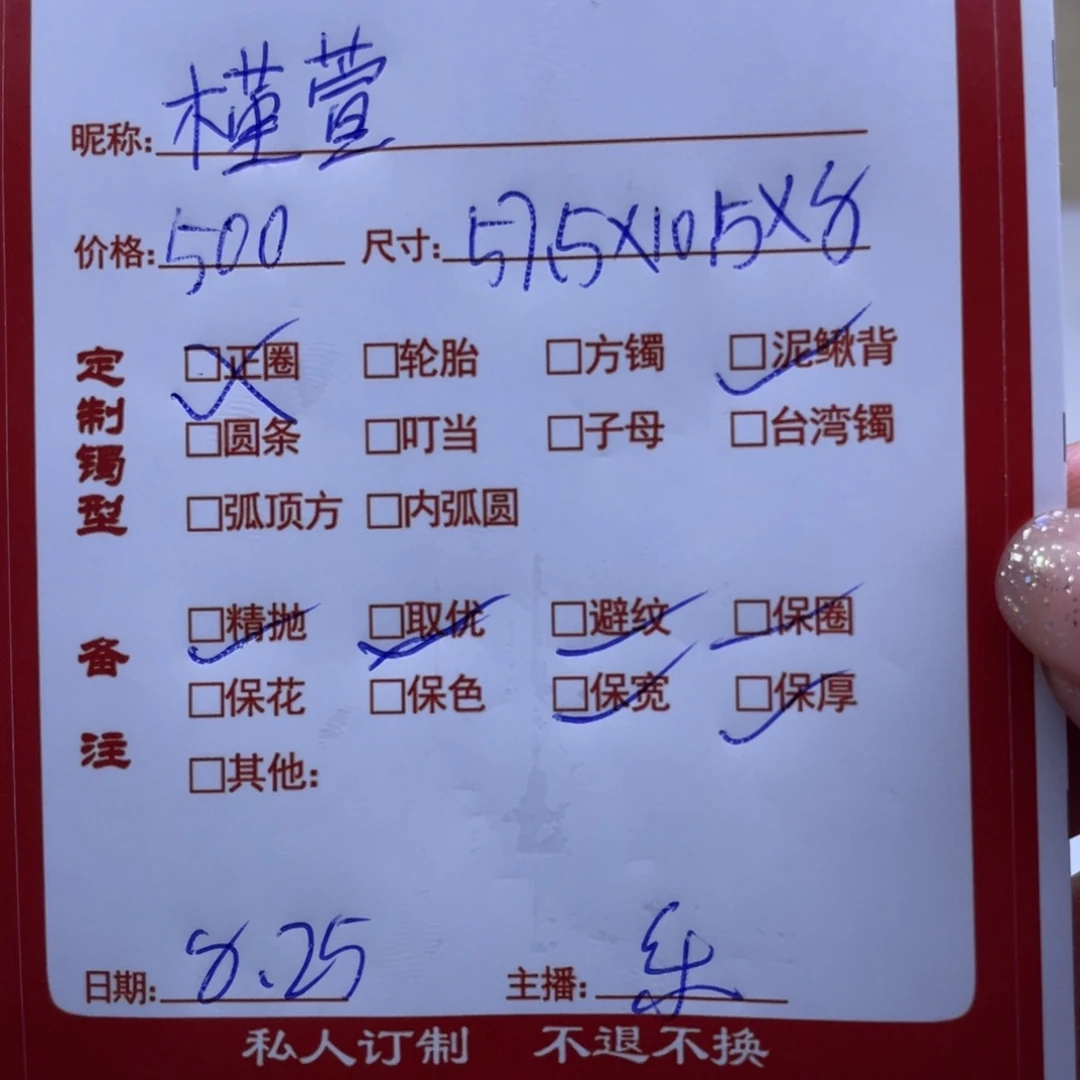 昵称: 槿萱
价格: 500 尺寸: 57.5×10.5×8
定制镯型
□正圈 □轮胎 □方镯 □泥鳅背
□圆条 □叮当 □子母 □台湾镯
□弧顶方 □内弧圆
备注
□精抛 □取优 □避纹 □保圈
□保花 □保色 □保宽 □保厚
□其他:
日期: 8.25 主播:
私人订制 不退不换